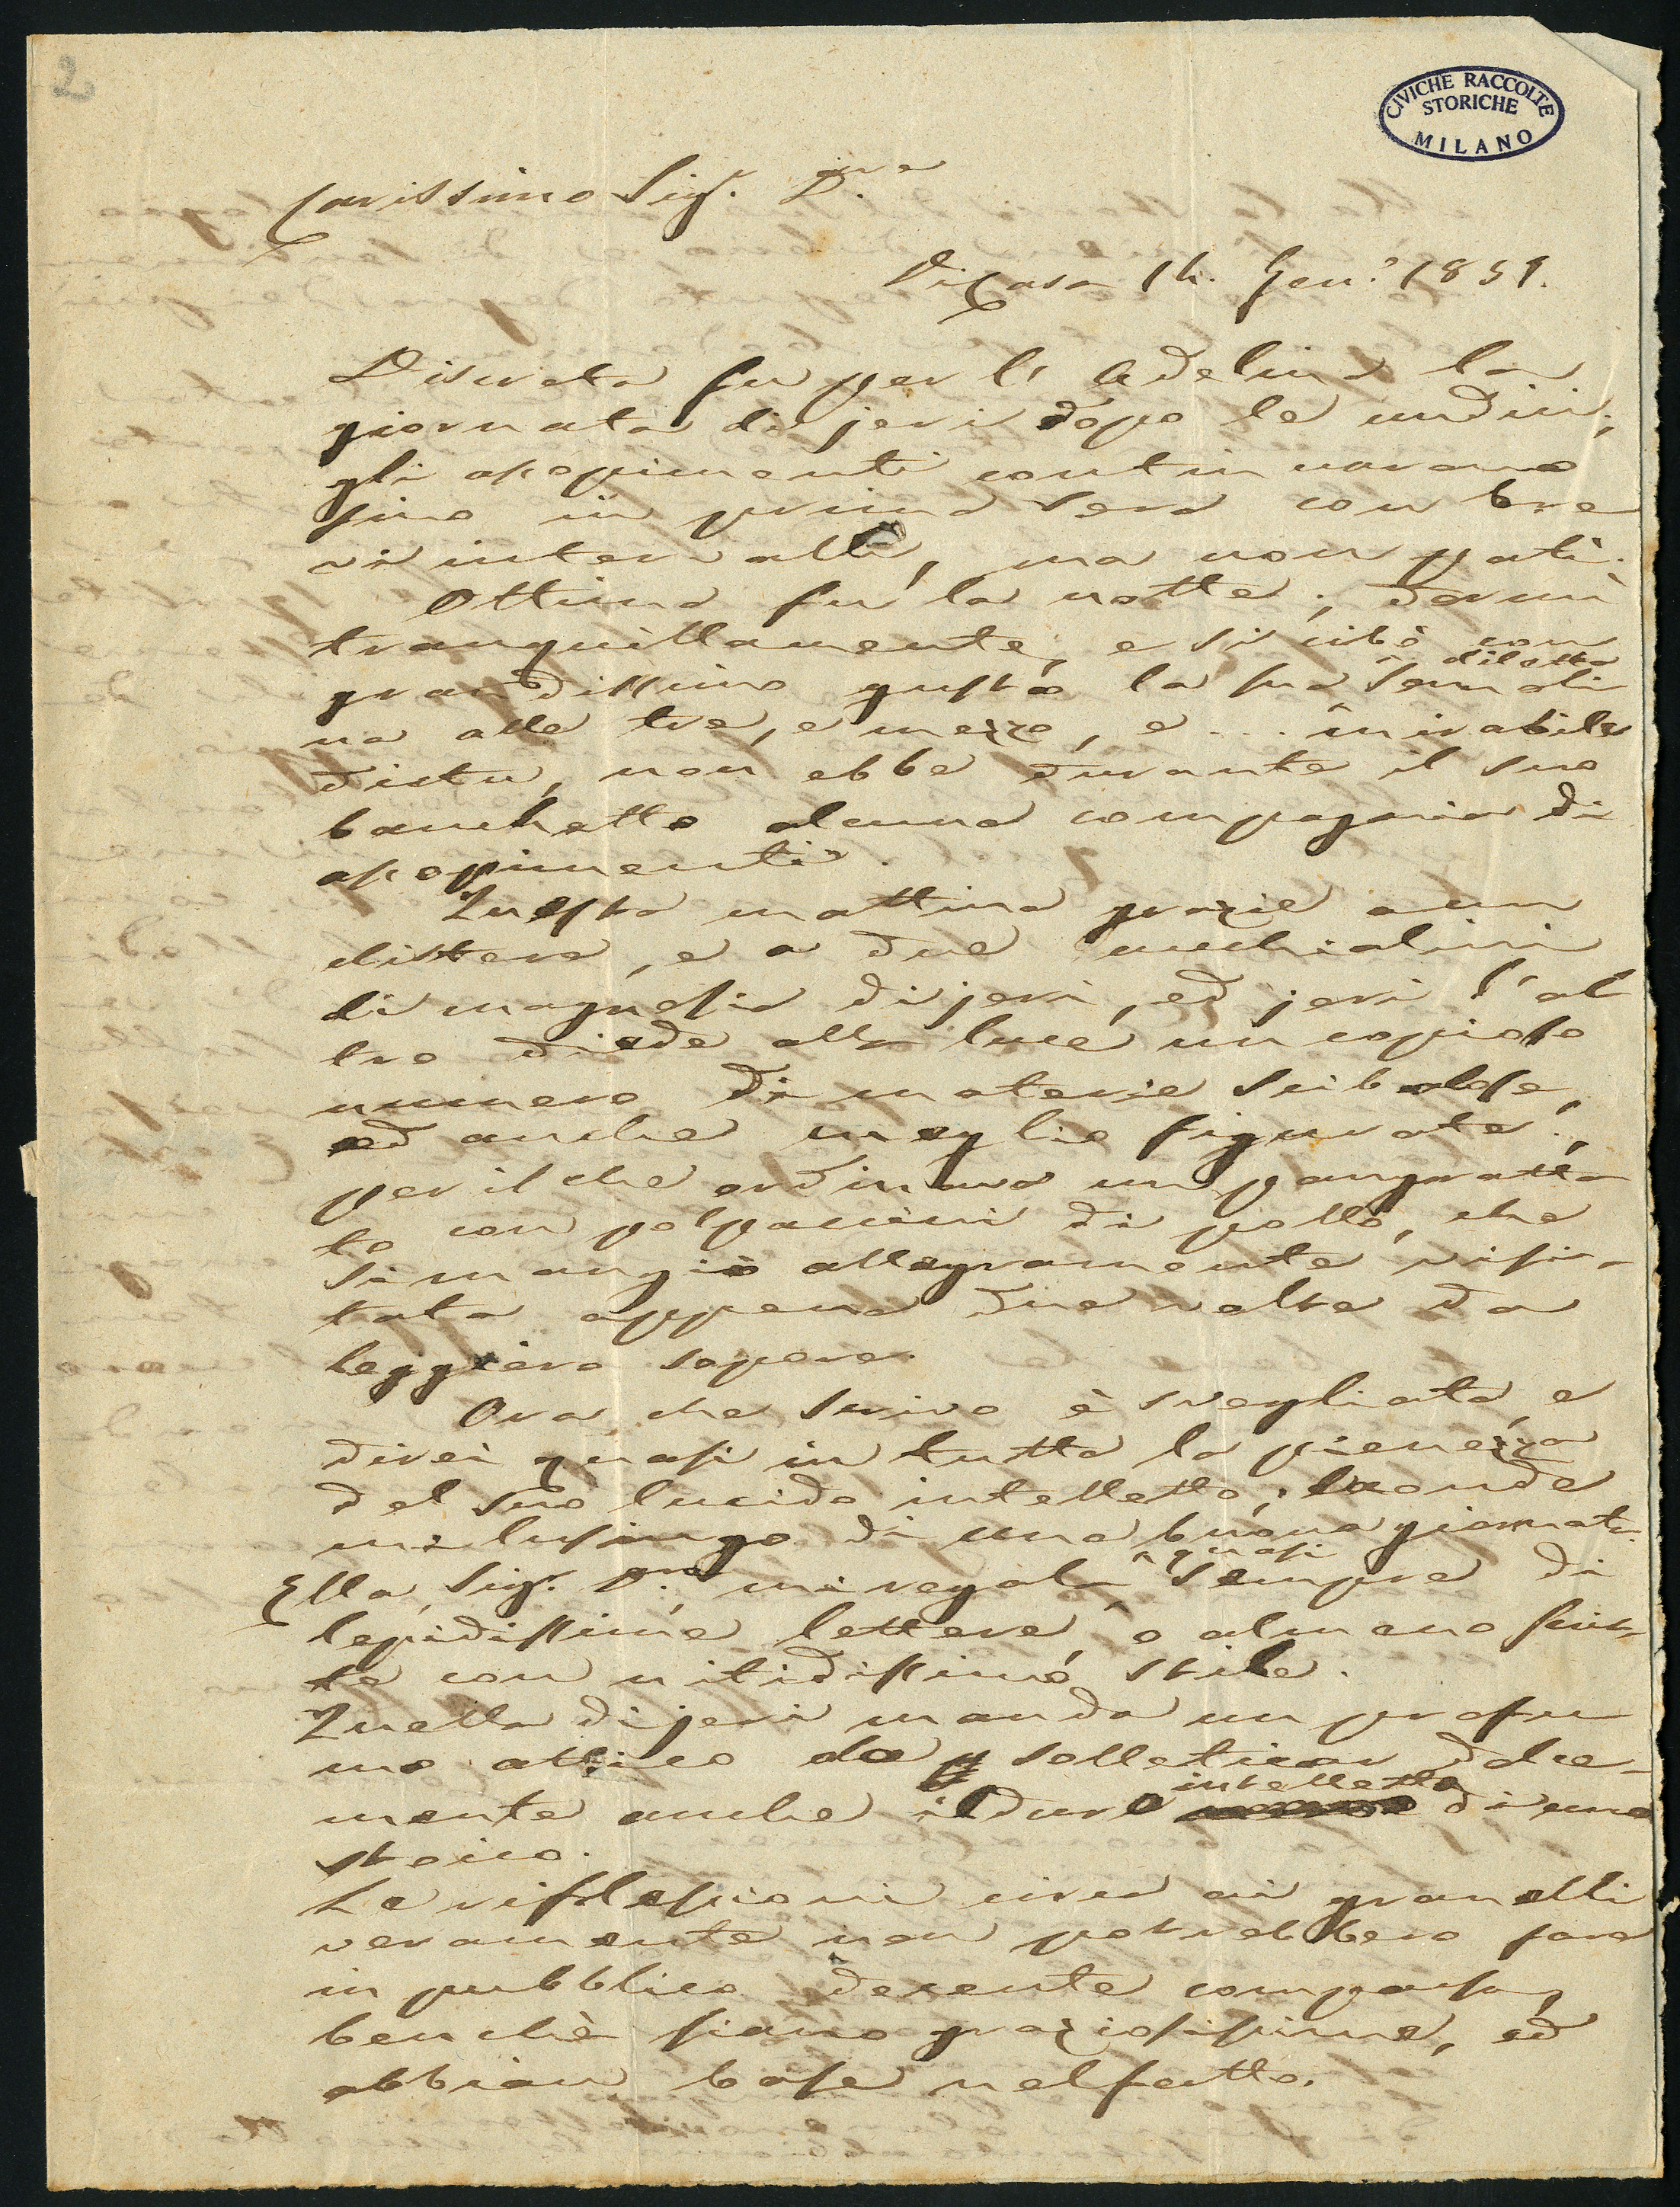 2
CIVICHE RACCOLTE
STORICHE
MILANO
Carissimo Sig.r D.re
Di Casa 14. Gen.o 1859.
Discreta fu per l'Adelina la
giornata di jeri dopo le undici;
gli assopimenti continuarono
sino in prima sera con bre
vi intervalli, ma non patì.
Ottima fu la notte; dormì
tranquillamente, e si cibò con
grandissimo gusto la sua diletta semoli
na alle tre, e mezzo, e... mirabile
dictu, non ebbe durante il suo
banchetto alcuna compagnia di
assopimenti.
Questa mattina grazie a un
clistere, e a due cucchialini
di magnesia di jeri, ed jeri l'al
tro diede alla luce un copioso
numero di materie scibalose,
ed anche meglio figurate;
per il che ordinava un pangratta
to con polpaccini di pollo, che
si mangiò allegramente visi-
tata appena due volte da
leggiero sopore.
Ora che scrivo è svegliata, e
direi quasi in tutta la pienezza
del suo lucido intelletto; laonde
mi lusingo di una buona giornata.
Ella, Sig.r D.re, mi regala quasi sempre di
lepidissime lettere, o almeno scrit
te con nitidissimo stile.
Quella di jeri manda un profu
mo attico da solleticar dolce-
mente anche il duro intelletto di uno
stoico.
Le riflessioni circa ai granelli
veramente non potrebbero fare
in pubblico decente comparsa,
benchè siano graziosissime, ed
abbian base nel fatto.